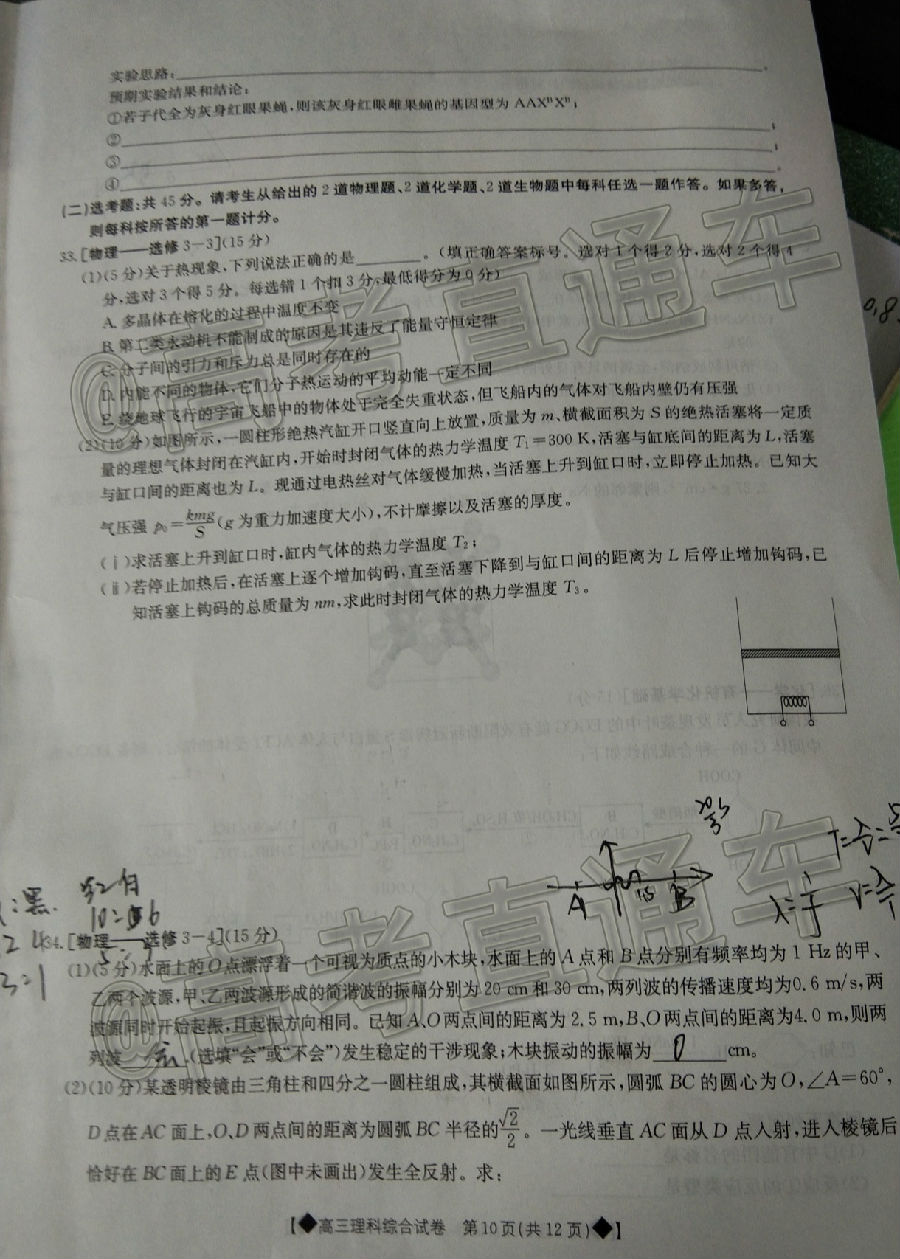 实验思路:
预期实验结果和结论:
①若子代全为灰身红眼果蝇,则该灰身红眼雌果蝇的基因型为 AAXᴮXᴮ;
②
③
④
(二)选考题:共 45 分。请考生从给出的 2 道物理题、2 道化学题、2 道生物题中每科任选一题作答。如果多答,
则每科按所答的第一题计分。
33.[物理——选修 3-3](15 分)
(1)(5 分)关于热现象,下列说法正确的是________。(填正确答案标号。选对 1 个得 2 分,选对 2 个得 4
分,选对 3 个得 5 分。每选错 1 个扣 3 分,最低得分为 0 分)
A. 多晶体在熔化的过程中温度不变
B. 第二类永动机不能制成的原因是其违反了能量守恒定律
C. 分子间的引力和斥力总是同时存在的
D. 内能不同的物体,它们分子热运动的平均动能一定不同
E. 绕地球飞行的宇宙飞船中的物体处于完全失重状态,但飞船内的气体对飞船内壁仍有压强
(2)(10 分)如图所示,一圆柱形绝热汽缸开口竖直向上放置,质量为 m、横截面积为 S 的绝热活塞将一定质
量的理想气体封闭在汽缸内,开始时封闭气体的热力学温度 T₁=300 K,活塞与缸底间的距离为 L,活塞
与缸口间的距离也为 L。现通过电热丝对气体缓慢加热,当活塞上升到缸口时,立即停止加热。已知大
气压强 p₀=kmg/S(g 为重力加速度大小),不计摩擦以及活塞的厚度。
(ⅰ)求活塞上升到缸口时,缸内气体的热力学温度 T₂;
(ⅱ)若停止加热后,在活塞上逐个增加钩码,直至活塞下降到与缸口间的距离为 L 后停止增加钩码,已
知活塞上钩码的总质量为 nm,求此时封闭气体的热力学温度 T₃。
A B
34.[物理——选修 3-4](15 分)
(1)(5 分)水面上的 O 点漂浮着一个可视为质点的小木块,水面上的 A 点和 B 点分别有频率均为 1 Hz 的甲、
乙两个波源,甲、乙两波源形成的简谐波的振幅分别为 20 cm 和 30 cm,两列波的传播速度均为0.6 m/s,两
波源同时开始起振,且起振方向相同。已知 A、O 两点间的距离为 2.5 m,B、O 两点间的距离为4.0 m,则两
列波 会 (选填“会”或“不会”)发生稳定的干涉现象;木块振动的振幅为 0 cm。
(2)(10 分)某透明棱镜由三角柱和四分之一圆柱组成,其横截面如图所示,圆弧 BC 的圆心为 O,∠A=60°,
D 点在 AC 面上,O、D 两点间的距离为圆弧 BC 半径的√2/2。一光线垂直 AC 面从 D 点入射,进入棱镜后
恰好在 BC 面上的 E 点(图中未画出)发生全反射。求:
【◆高三理科综合试卷 第 10 页(共 12 页)◆】
@高考直通车
@高考直通车